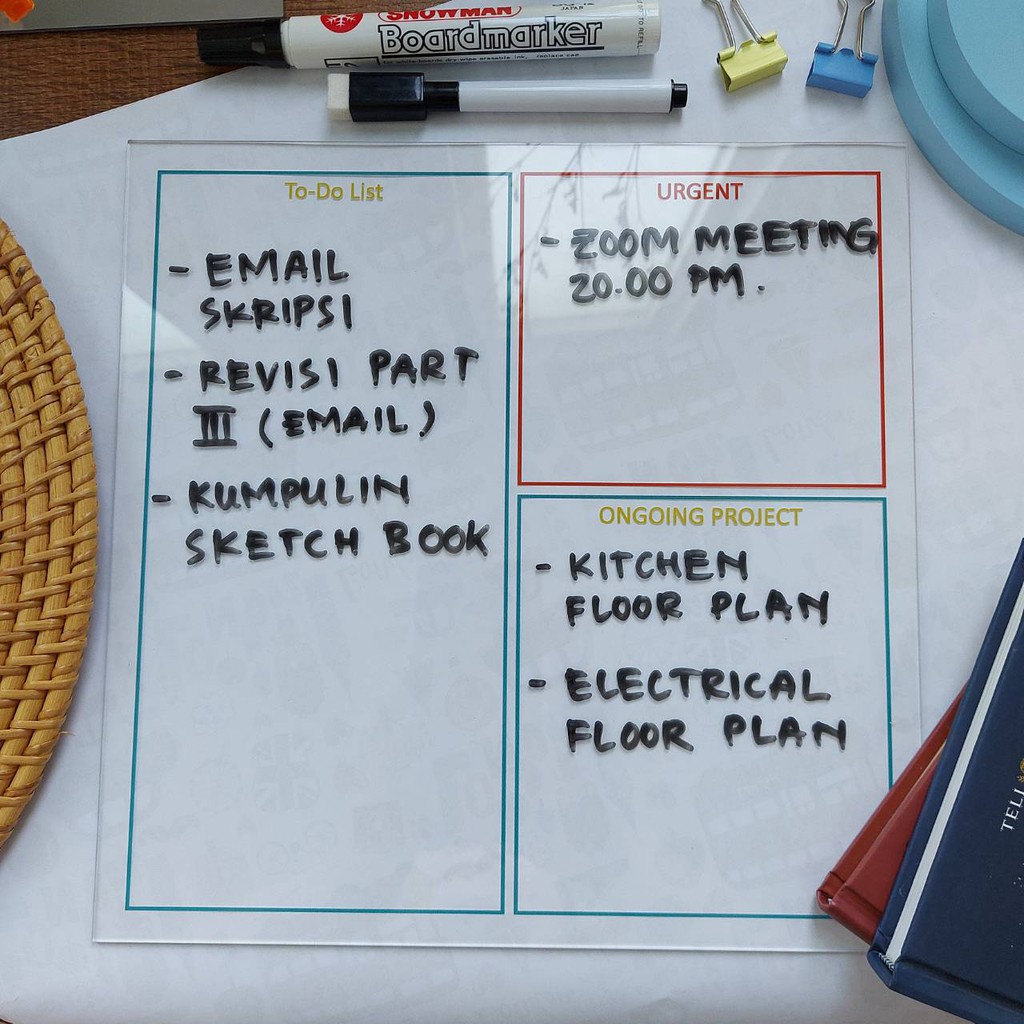 SNOWMAN
JAPAN
Boardmarker
To-Do List
- EMAIL
SKRIPSI
- REVISI PART
III (EMAIL)
- KUMPULIN
SKETCH BOOK
URGENT
- ZOOM MEETING
20.00 PM.
ONGOING PROJECT
- KITCHEN
FLOOR PLAN
- ELECTRICAL
FLOOR PLAN